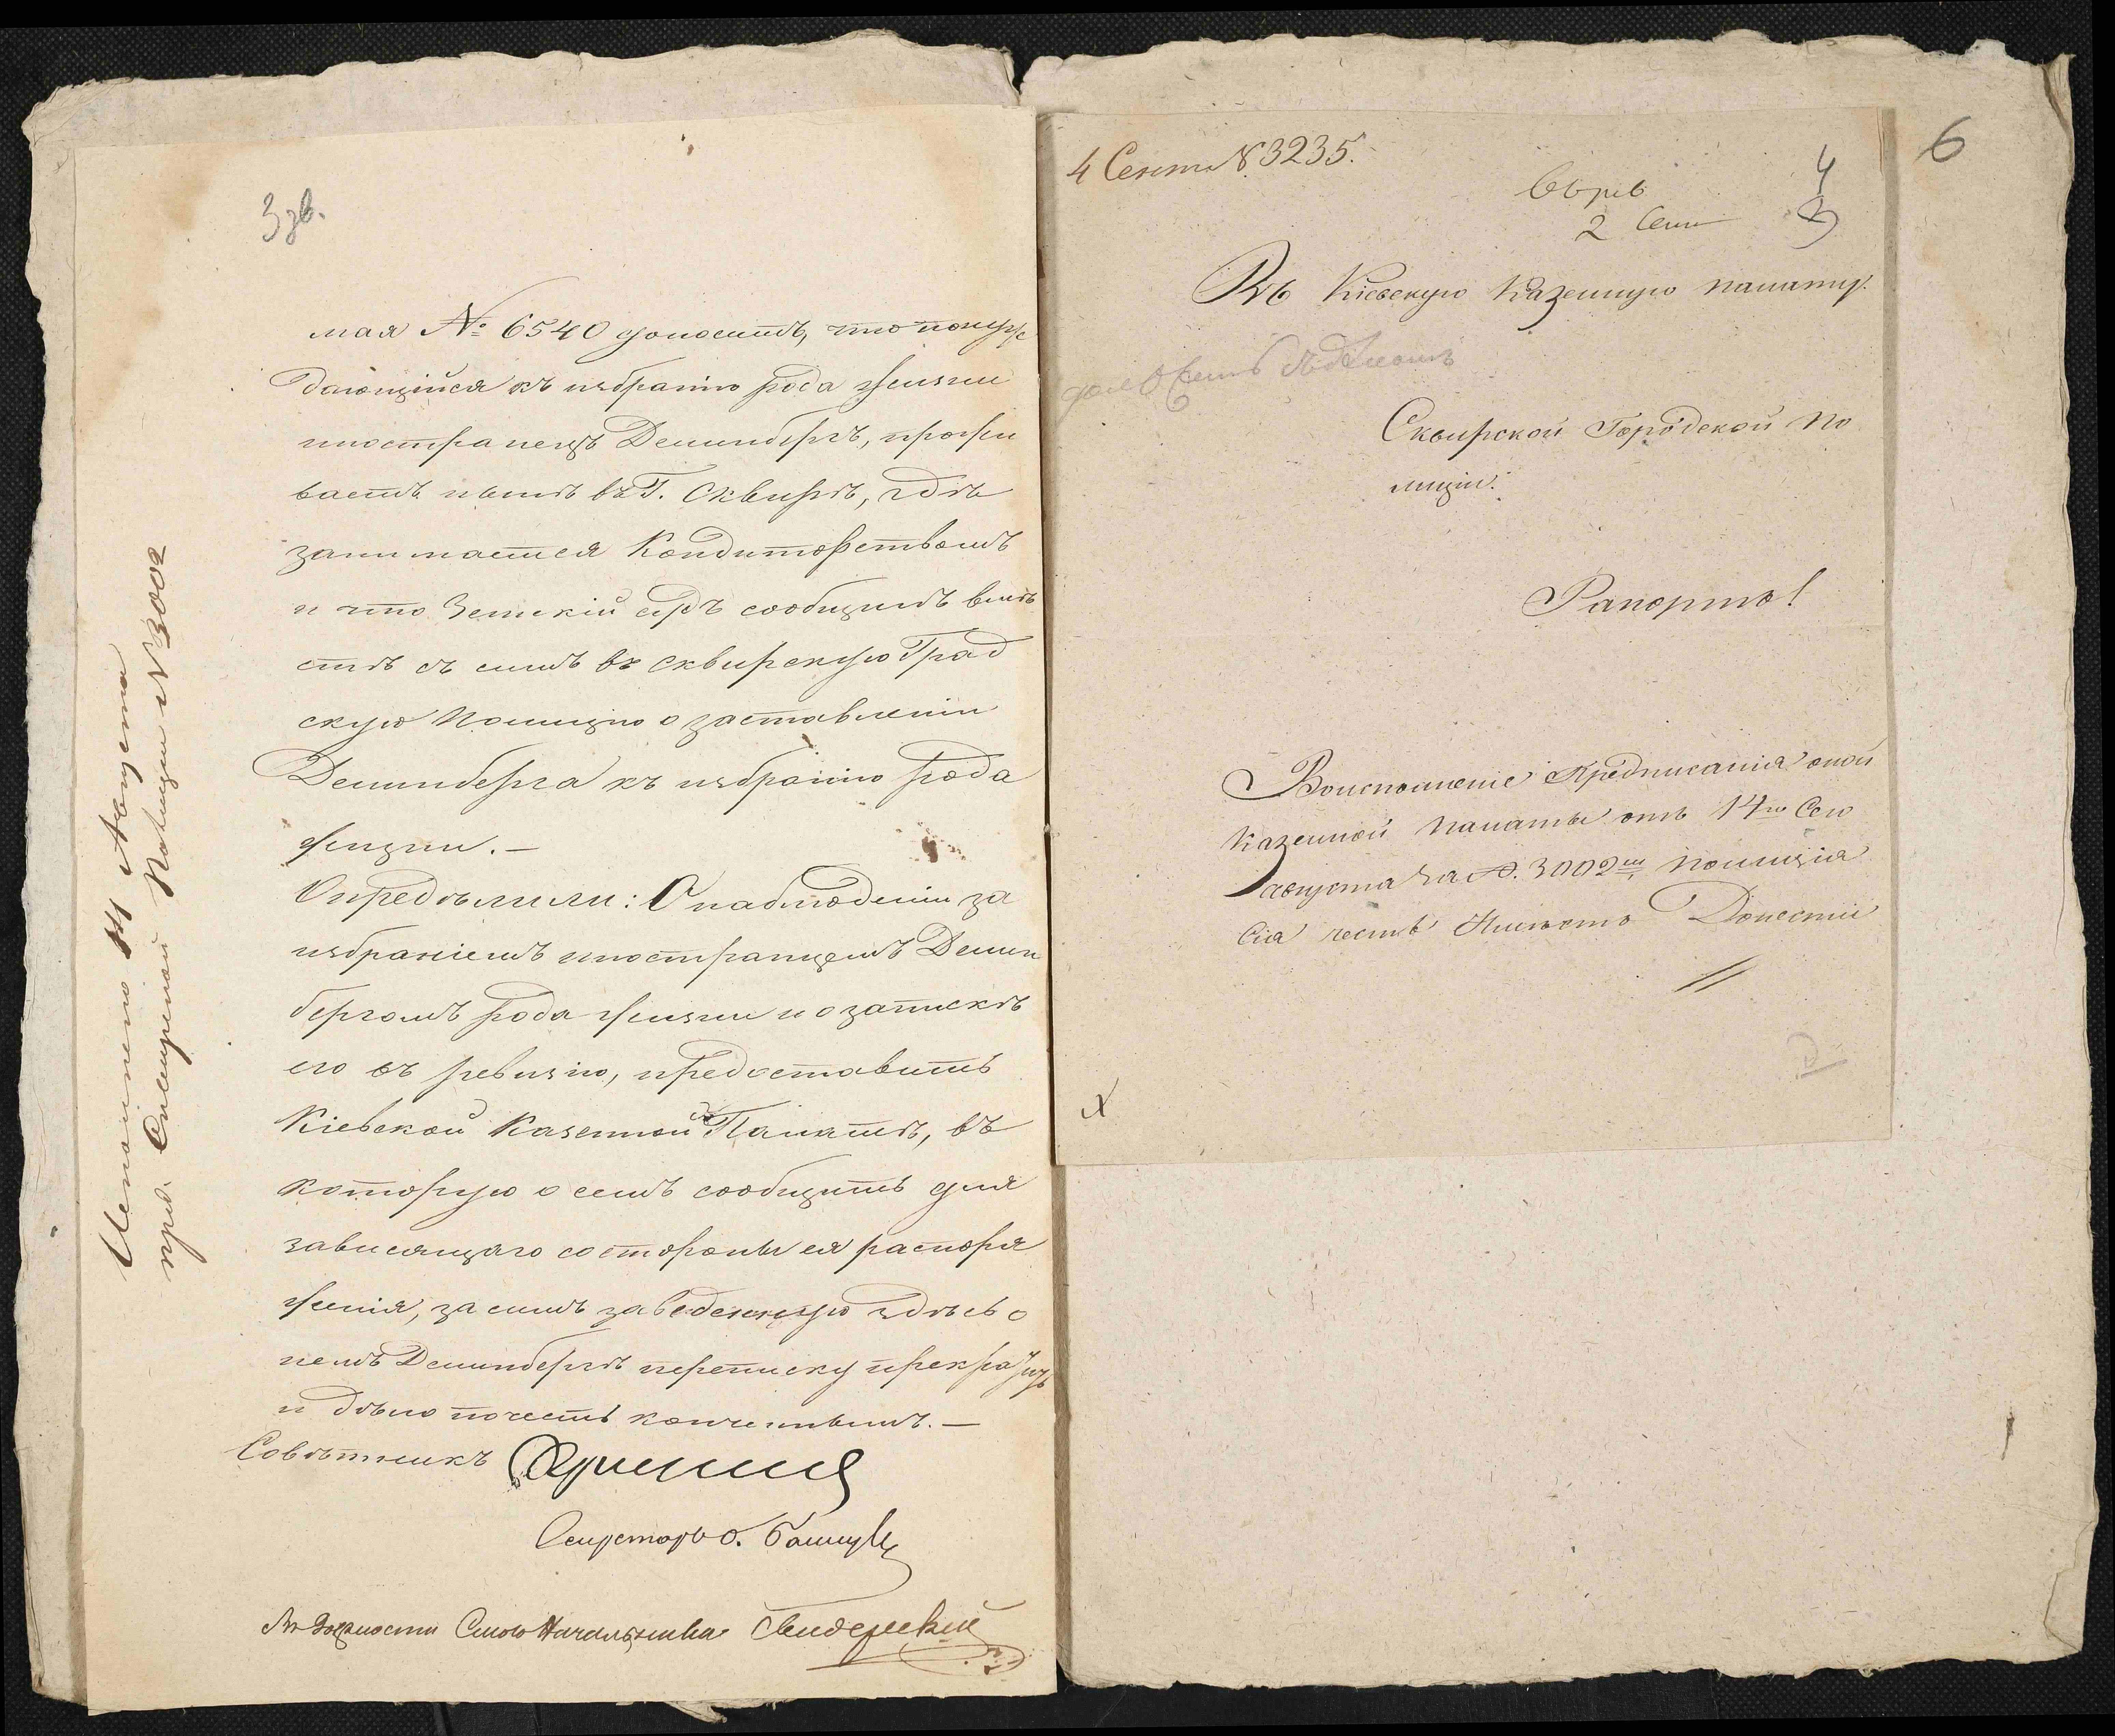 3 зв.
мая № 6540 доноситъ, что понуж
дающійся къ избранію рода жизни
иностранецъ Деминбергъ, прожи
ваетъ нынѣ въ Г. Сквирѣ, гдѣ
занимается Кондиторствомъ
и что Земскій судъ сообщилъ вмѣ
стѣ съ симъ въ Сквирскую Град
скую Полицію о заставленіи
Деминберга къ избранію рода
жизни. —
Опредѣлили: О наблюденіи за
избраніемъ иностранцемъ Демин
бергомъ рода жизни и о запискѣ
его въ ревизію, предоставить
Кіевской Казенной Палатѣ, въ
которую о семъ сообщить для
зависящаго со стороны ея распоря
женія, за симъ заведенную здѣсь о
немъ Деминбергѣ переписку прекратить
и дѣло почесть конченнымъ. —
Совѣтникъ
Секретарь
Въ должности Столоначальника
Исполнено 14 Августа
пред. Сквирской Полиціи № 3002
6
4 Сент № 3235.
4
2 Сен
Въ Кіевскую Казенную палату.
Сквирской Городской По
лиціи.
Рапортъ!
Воисполненіе Предписанія оной
Казенной палаты отъ 14го Сего
августа за №. 3002м, полиція
Сія честь Имѣетъ Донести